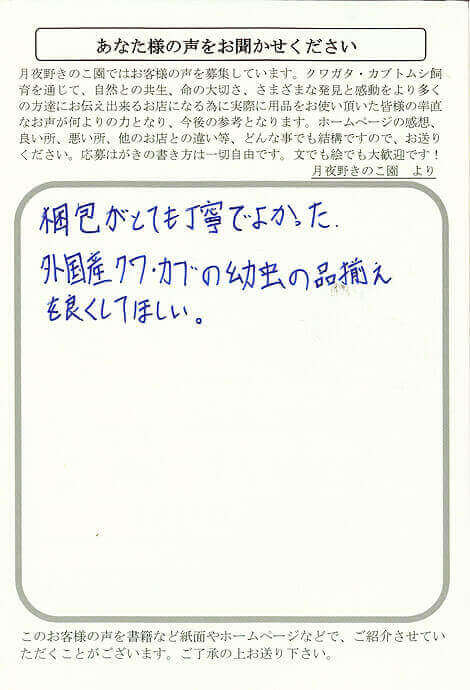 あなた様の声をお聞かせください
月夜野きのこ園ではお客様の声を募集しています。クワガタ・カブトムシ飼
育を通じて、自然との共生、命の大切さ、さまざまな発見と感動をより多く
の方達にお伝え出来るお店になる為に実際に用品をお使い頂いた皆様の率直
なお声が何よりの力となり、今後の参考となります。ホームページの感想、
良い所、悪い所、他のお店との違い等、どんな事でも結構ですので、お送り
ください。応募はがきの書き方は一切自由です。文でも絵でも大歓迎です！
月夜野きのこ園 より
梱包がとても丁寧でよかった.
外国産クワ・カブの幼虫の品揃え
を良くしてほしい。
このお客様の声を書籍など紙面やホームページなどで、ご紹介させてい
ただくことがございます。ご了承の上お送り下さい。